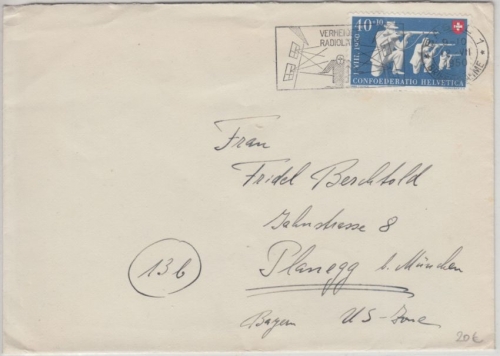 40+10
1. VIII. 1950
CONFOEDERATIO HELVETICA
1
Frau
Fridel Berchtold
Jahnstrasse 8
13b
Planegg b. München
Bayern US-Zone
20€